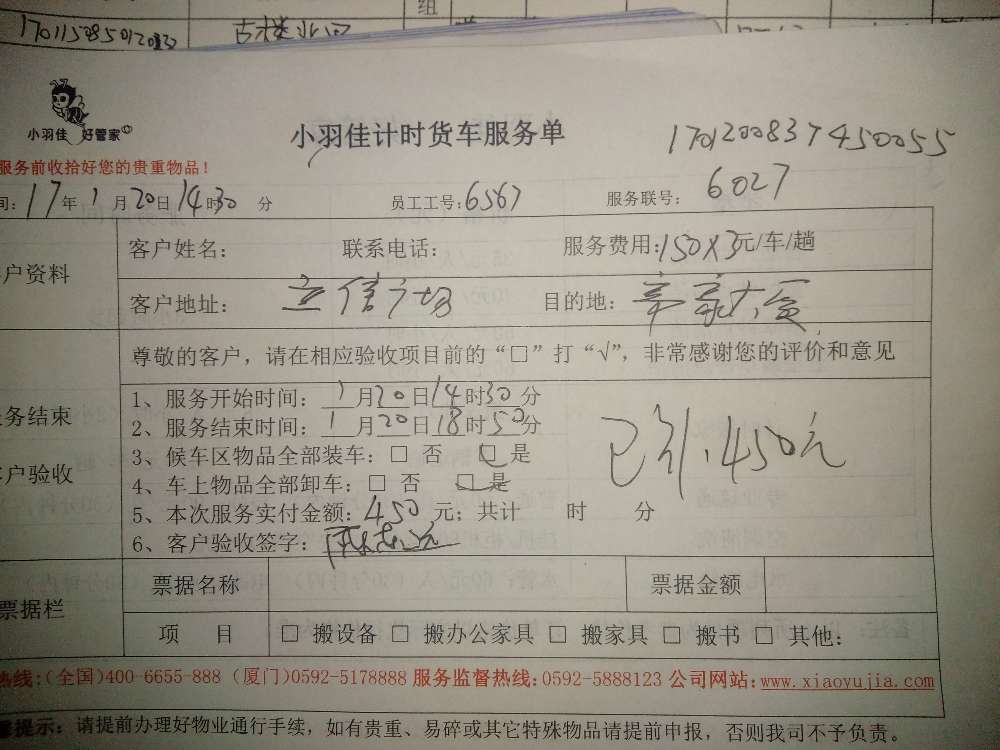 组
小羽佳 好管家
小羽佳计时货车服务单
1701200837450055
服务前收拾好您的贵重物品！
间：17年1月20日14时30分 员工工号：6567 服务联号：6027
户资料
客户姓名： 联系电话： 服务费用：150X3元/车/趟
客户地址：立信广场 目的地：
尊敬的客户，请在相应验收项目前的“□”打“√”，非常感谢您的评价和意见
务结束
户验收
1、服务开始时间：1月20日14时30分
2、服务结束时间：1月20日18时50分
3、候车区物品全部装车：□ 否 □ 是
4、车上物品全部卸车：□ 否 □ 是
5、本次服务实付金额：450元；共计 时 分
6、客户验收签字：
450元
票据栏
票据名称 票据金额
项 目 □ 搬设备 □ 搬办公家具 □ 搬家具 □ 搬书 □ 其他：
热线：(全国)400-6655-888 (厦门)0592-5178888 服务监督热线：0592-5888123 公司网站：www.xiaoyujia.com
馨提示：请提前办理好物业通行手续，如有贵重、易碎或其它特殊物品请提前申报，否则我司不予负责。